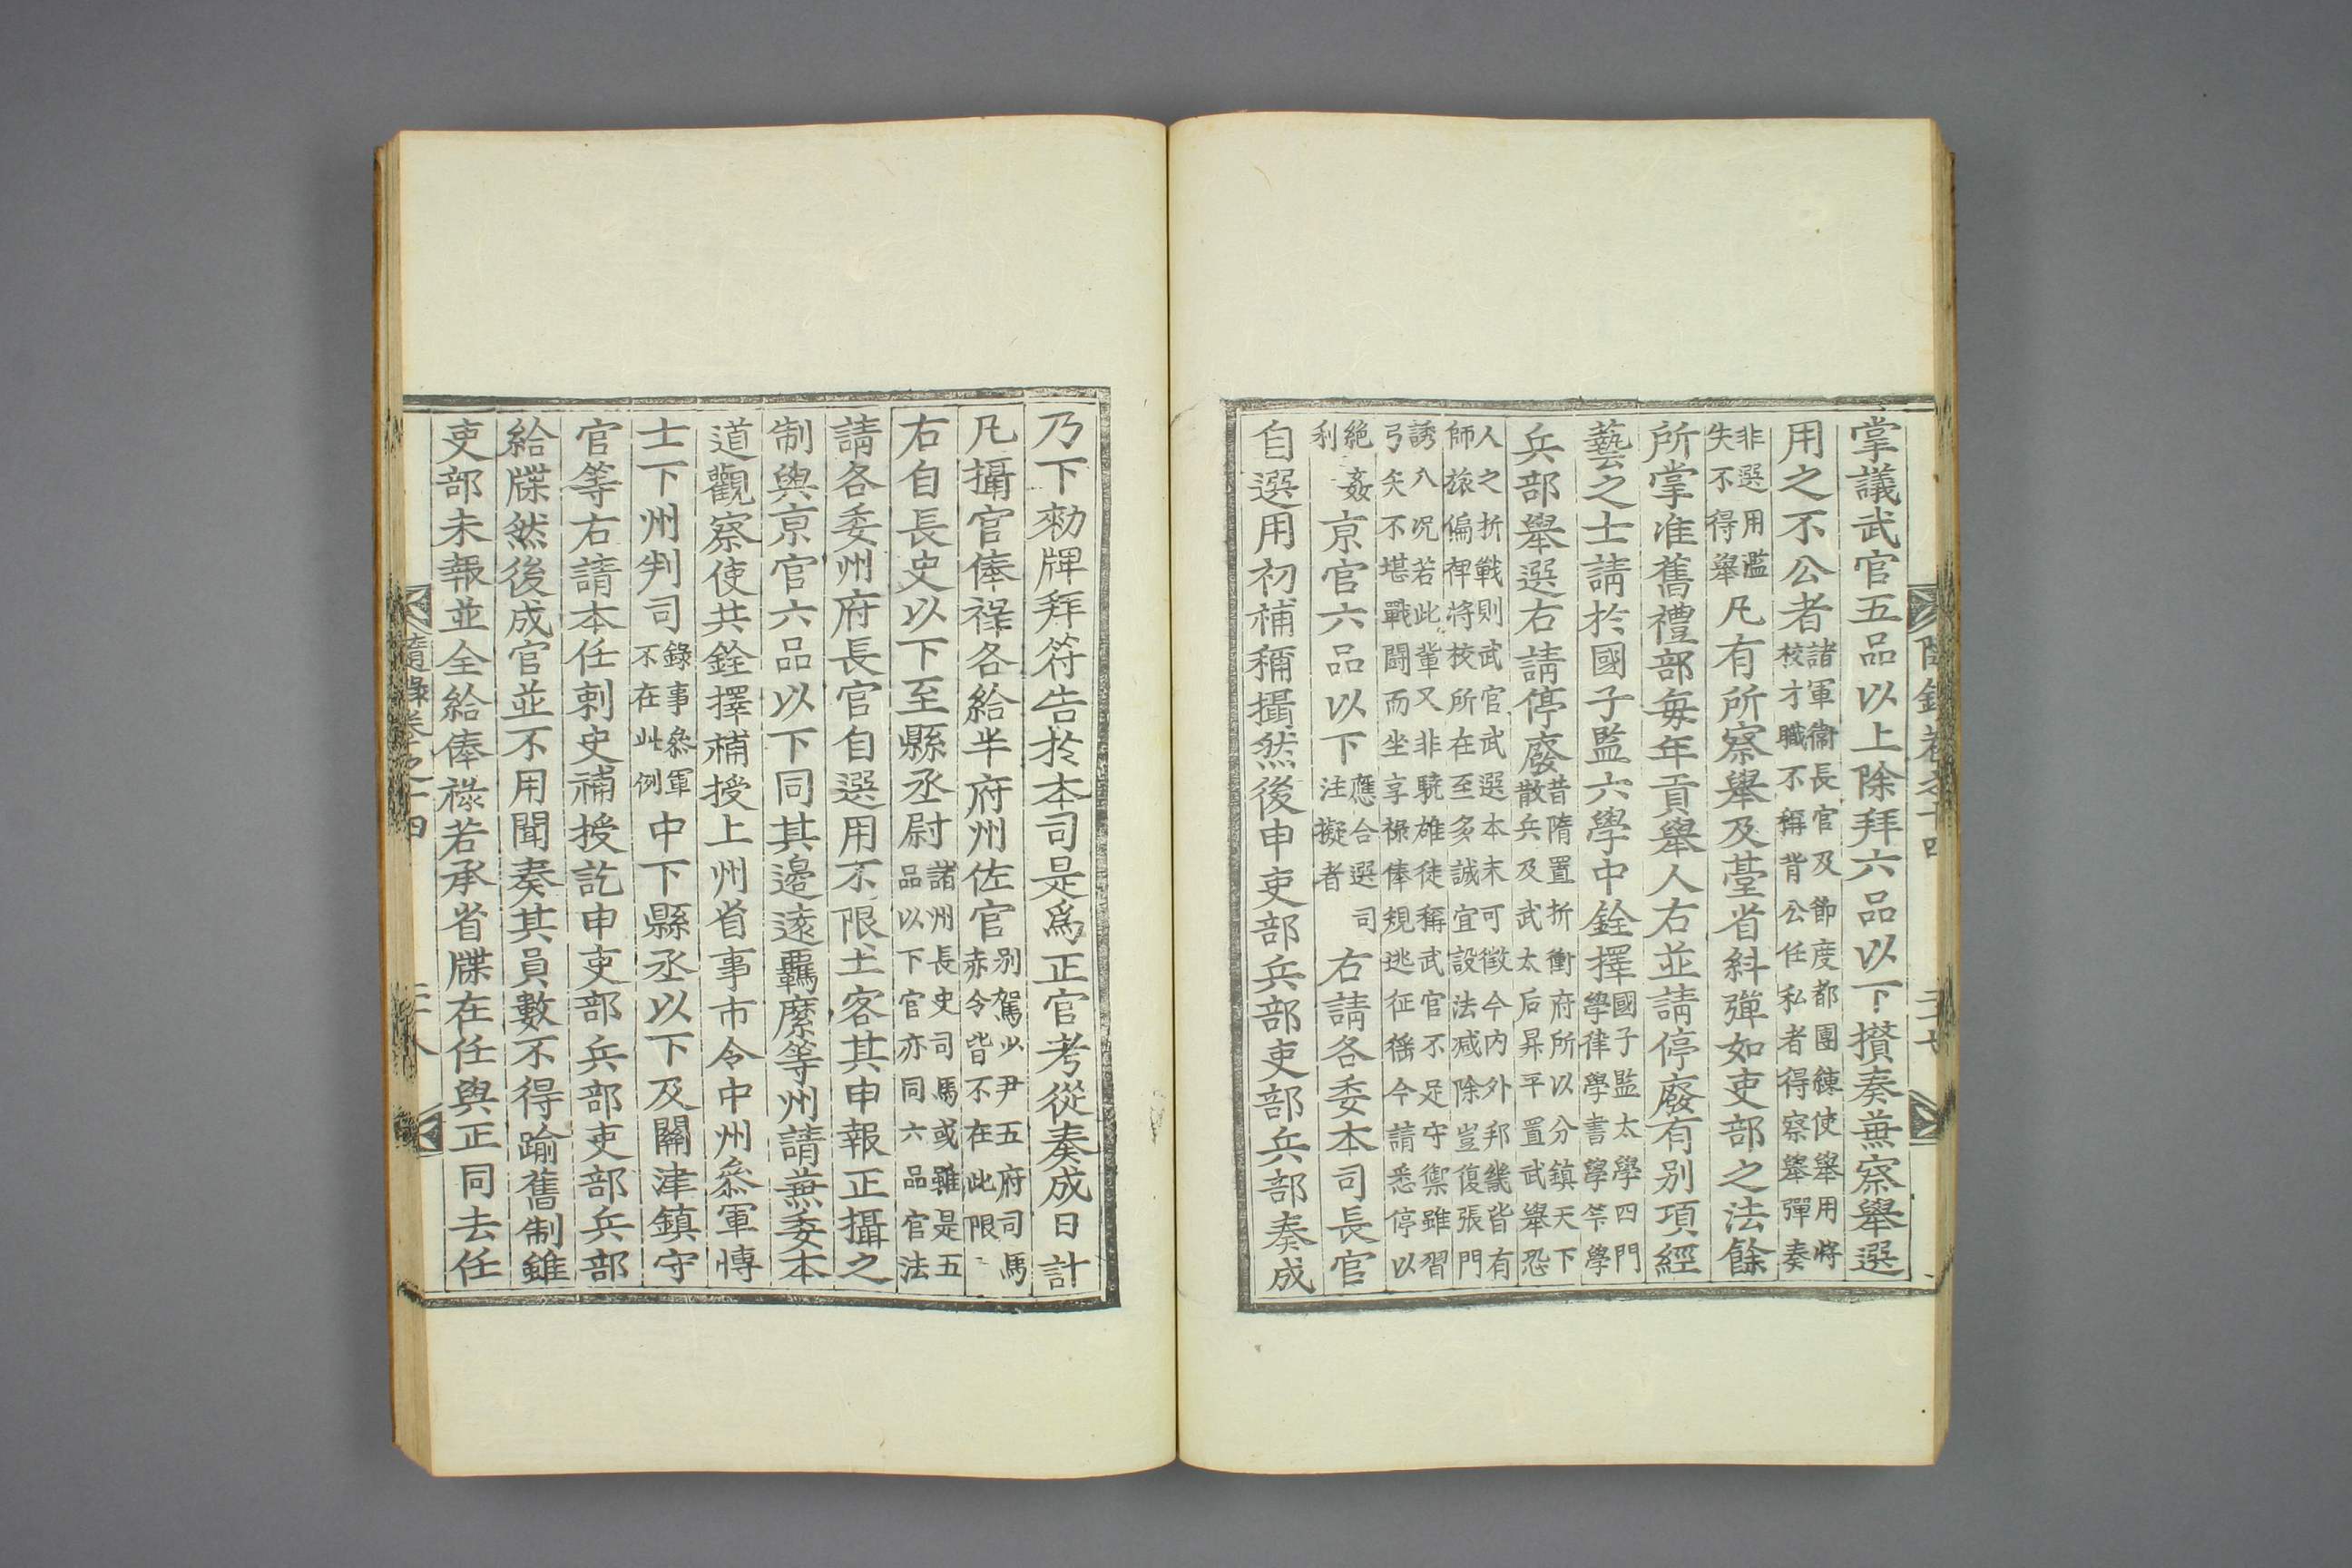 掌議武官五品以上除拜六品以下攅奏兼察舉選
用之不公者諸軍衞長官及節度都團練使舉用將校才職不稱背公任私者得察舉彈奏
非選用濫失不得舉凡有所察舉及臺省糾彈如吏部之法餘
所掌准舊禮部每年貢舉人右並請停廢有別項經
藝之士請於國子監六學中銓擇國子監太學四門學律學書學筭學
兵部舉選右請停廢昔隋置折衝府所以分鎮天下散兵及武太后昇平置武舉恐
人之折戰則武官武選本末可徵今內外邦畿皆有師旅偏裨將校所在至多誠宜設法減除豈復張門
誘入况若此輩又非驍雄徒稱武官不足守禦雖習弓矢不堪戰鬪而坐享祿俸規逃征徭今請悉停以
絕姦利京官六品以下應合選司注擬者右請各委本司長官
自選用初補稱攝然後申吏部兵部吏部兵部奏成
隨錄卷之十四
二十七
乃下勑牌拜符告於本司是爲正官考從奏成日計
凡攝官俸祿各給半府州佐官别駕少尹五府司馬赤令皆不在此限
右自長史以下至縣丞尉諸州長史司馬或雖是五品以下官亦同六品官法
請各委州府長官自選用不限土客其申報正攝之
制與京官六品以下同其邊遠羈縻等州請兼委本
道觀察使共銓擇補授上州省事市令中州叅軍愽
士下州判司錄事叅軍不在此例中下縣丞以下及關津鎮守
官等右請本任刺史補授訖申吏部兵部吏部兵部
給牒然後成官並不用聞奏其員數不得踰舊制雖
吏部未報並全給俸祿若承省牒在任與正同去任
隨錄卷之十四
二十八